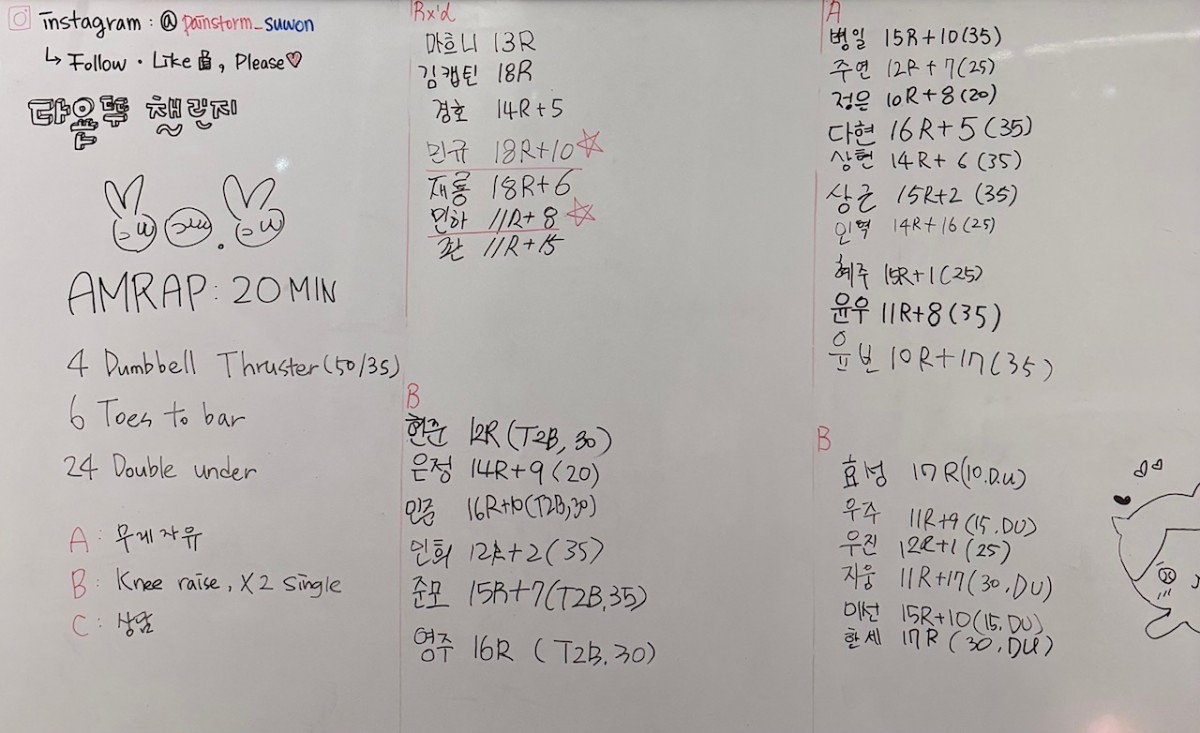 instagram : @painstorm_suwon
↳ Follow · Like, Please
다음뚜 챌린지
AMRAP : 20 MIN
4 Dumbbell Thruster (50/35)
6 Toes to bar
24 Double under
A : 무게자유
B : Knee raise, X2 single
C : 상담
Rx'd
마흐니 13R
김캡틴 18R
경호 14R+5
민규 18R+10
재룡 18R+6
민하 11R+8
조한 11R+15
B
현준 12R (T2B, 30)
은정 14R+9 (20)
민준 16R+10 (T2B, 30)
민희 12R+2 (35)
준모 15R+7 (T2B, 35)
영주 16R (T2B, 30)
A
병일 15R+10 (35)
주연 12R+7 (25)
정은 10R+8 (20)
다현 16R+5 (35)
상헌 14R+6 (35)
상근 15R+2 (35)
인혁 14R+16 (25)
혜주 15R+1 (25)
윤우 11R+8 (35)
윤빈 10R+17 (35)
B
효성 17R (10.D.U)
우주 11R+9 (15, DU)
우진 12R+1 (25)
자웅 11R+17 (30, DU)
미선 15R+10 (15. DU)
한세 17R (30, DU)